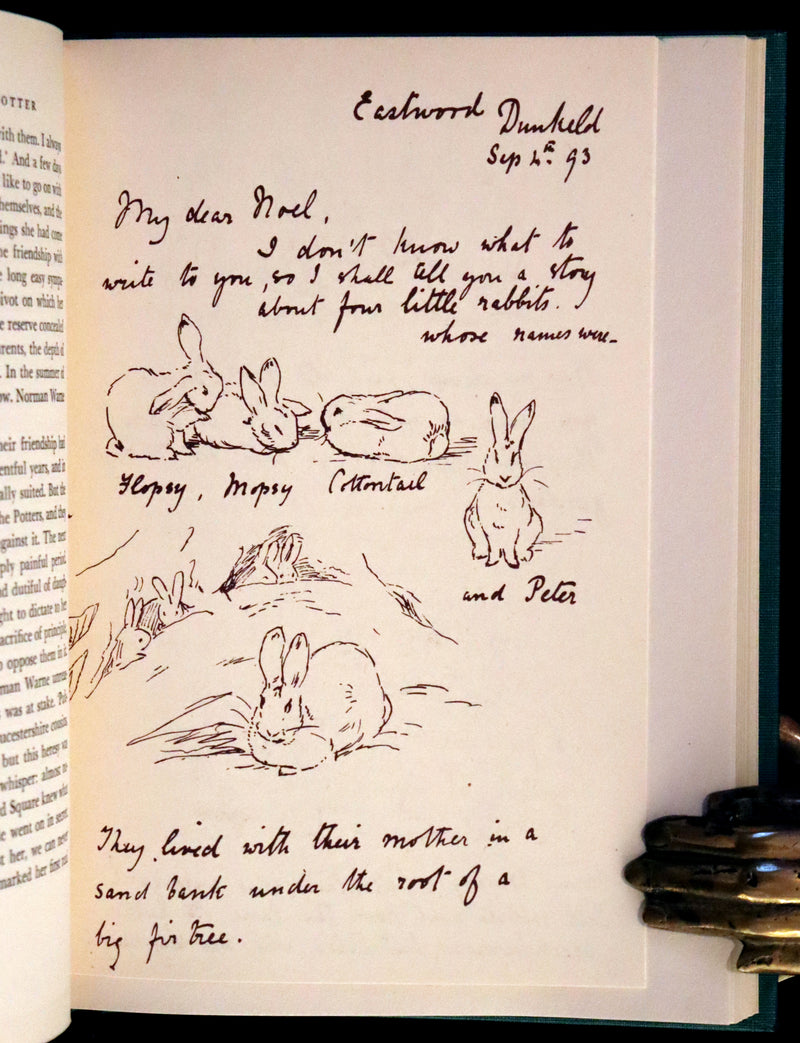 OTTER
with them. I always
And a few days
like to go on with
themselves, and the
ings she had come
friendship with
long easy
pivot on which her
reserve concealed
the depth of
In the summer of
Norman Warne
their friendship had
eventful years, and in
suited. But the
the Potters, and they
against it. The next
painful period.
and dutiful of
ght to dictate to her
sacrifice of principle
oppose them in it.
Warne
was at stake.
cousin
but this heresy
whisper: almost
Square knew what
went on in secret
her, we can never
marked her first
Eastwood Dunkeld
Sep 4th. 93
My dear Noel,
I don't know what to
write to you, so I shall tell you a story
about four little rabbits.
whose names were-
Flopsy, Mopsy Cottontail
and Peter
They lived with their mother in a
sand bank under the root of a
big fir tree.